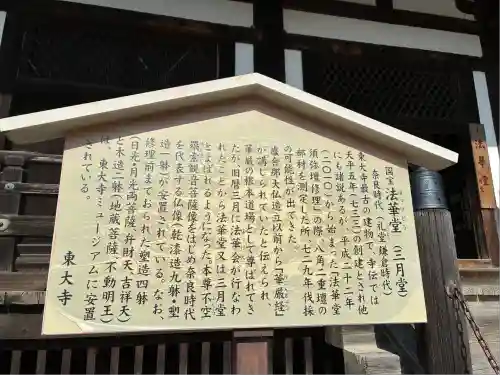 国宝 法華堂(三月堂)
奈良時代(礼堂 鎌倉時代)
東大寺最古の建物で、寺伝では
天平五年(七三三)の創建とされ他
にも諸説あるが、平成二十二年
(二〇一〇)から始まった「法華堂
須弥壇修理」の際、八角二重壇の
部材を測定した所、七二九年伐採
の可能性が出てきた。
盧舎那大仏造立以前から『華厳経』
が講じられていたと伝えられ、
華厳の根本道場として尊ばれてき
たが、旧暦三月に法華会が行なわ
れたことから法華堂又は三月堂
とよばれるようになった。本尊不空
羂索観音菩薩像をはじめ奈良時代
を代表する仏像(乾漆造九躰・塑
造一躰)が安置されている。なお、
修理前までおられた塑造四躰
(日光・月光両菩薩、弁財天、吉祥天)
と木造二躰(地蔵菩薩、不動明王)
は、東大寺ミュージアムに安置
されている。
東大寺
三月堂